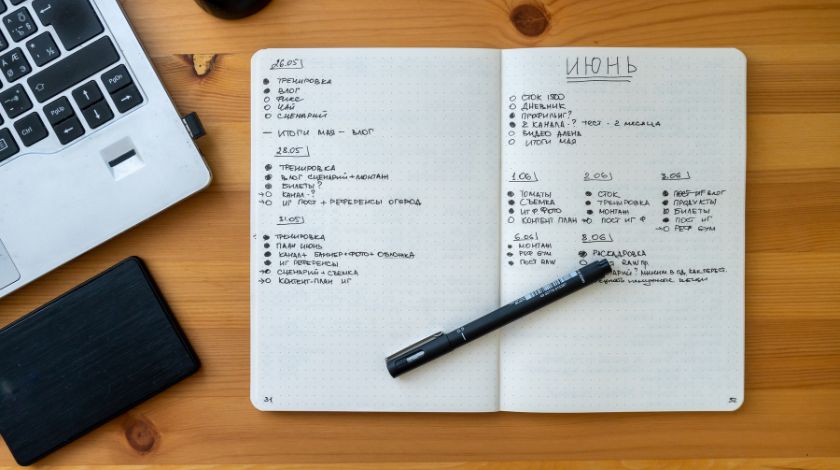 26.05
ТРЕНИРОВКА
ВЛОГ
ФИКС
ЧАЙ
СЦЕНАРИЙ
— ИТОГИ МАЯ — ВЛОГ
28.05
ТРЕНИРОВКА
ВЛОГ СЦЕНАРИЙ + МОНТАЖ
БИЛЕТЫ ?
КАНАЛ - ?
ИГ ПОСТ + РЕФЕРЕНСЫ ОГОРОД
31.05
ТРЕНИРОВКА
ПЛАН ИЮНЬ
КАНАЛ + БАННЕР + ФОТО + ОБЛОЖКА
ИГ РЕФЕРЕНСЫ
СЦЕНАРИЙ + СЪЕМКА
КОНТЕНТ-ПЛАН ИГ
31
ИЮНЬ
СТОК
ДНЕВНИК
ПРОФИЛЬ ИГ?
2 КАНАЛА - ? ТЕСТ - 2 МЕСЯЦА
ВИДЕО АЛЕНА
ИТОГИ МАЯ
1.06
ТОМАТЫ
СЪЕМКА
ИГ Ф ФОТО
КОНТЕНТ ПЛАН
2.06
СТОК
ТРЕНИРОВКА
МОНТАЖ
ПОСТ ИГ Ф
3.06
ПОСТ-ИГ ВЛОГ
ПРОДУКТЫ
БИЛЕТЫ
ПОСТ ИГ
РЕФ GYM
6.06
МОНТАЖ
РЕФ GYM
ПОСТ RAW
8.06
РАСКАДРОВКА
RAW
32
Ctrl
PgUp
PgDn